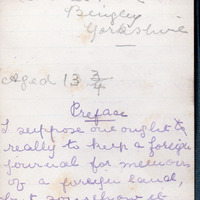 Bingley
Yorkshire
Aged 13 3/4
Preface
I suppose one ought
really to keep a foreign
journal for memoirs
of a foreign land,
but somehow